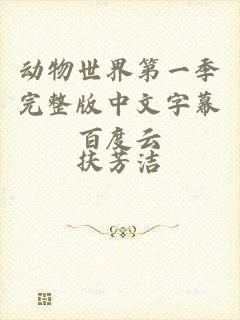 动物世界第一季
完整版中文字幕
百度云
扶芳洁